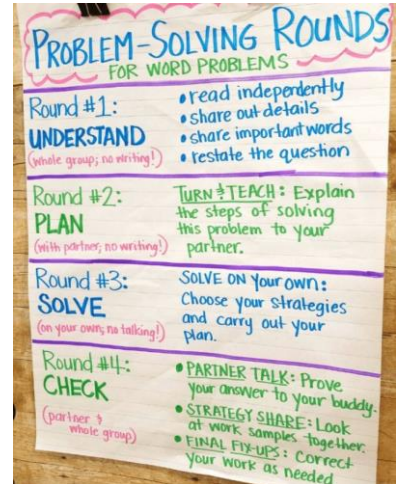 PROBLEM-SOLVING ROUNDS
FOR WORD PROBLEMS
Round #1:
UNDERSTAND
(whole group; no writing!)
• read independently
• share out details
• share important words
• restate the question
Round #2:
PLAN
(with partner; no writing!)
TURN & TEACH: Explain
the steps of solving
this problem to your
partner.
Round #3:
SOLVE
(on your own; no talking!)
SOLVE ON your own:
Choose your strategies
and carry out your
plan.
Round #4:
CHECK
(partner &
whole group)
• PARTNER TALK: Prove
your answer to your buddy.
• STRATEGY SHARE: Look
at work samples together.
• FINAL FIX-UPS: Correct
your work as needed